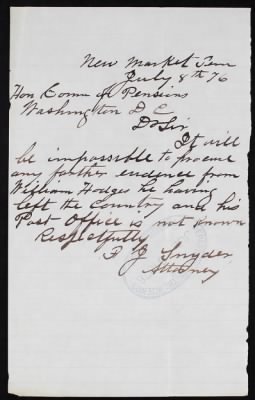 New Market Tenn
July 8th 76
Hon Comr of Pensions
Washington D C
Dr Sir
It will
be impossible to procure
any farther evidence from
William Hodges he having
left the Country and his
Post Office is not known
Respectfully
F J Snyder
Attorney